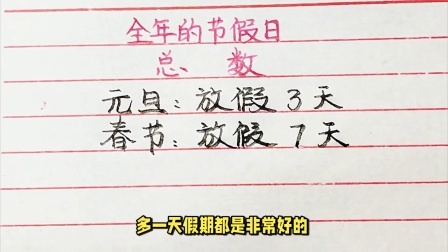 全年的节假日
总数
元旦：放假3天
春节：放假7天
多一天假期都是非常好的